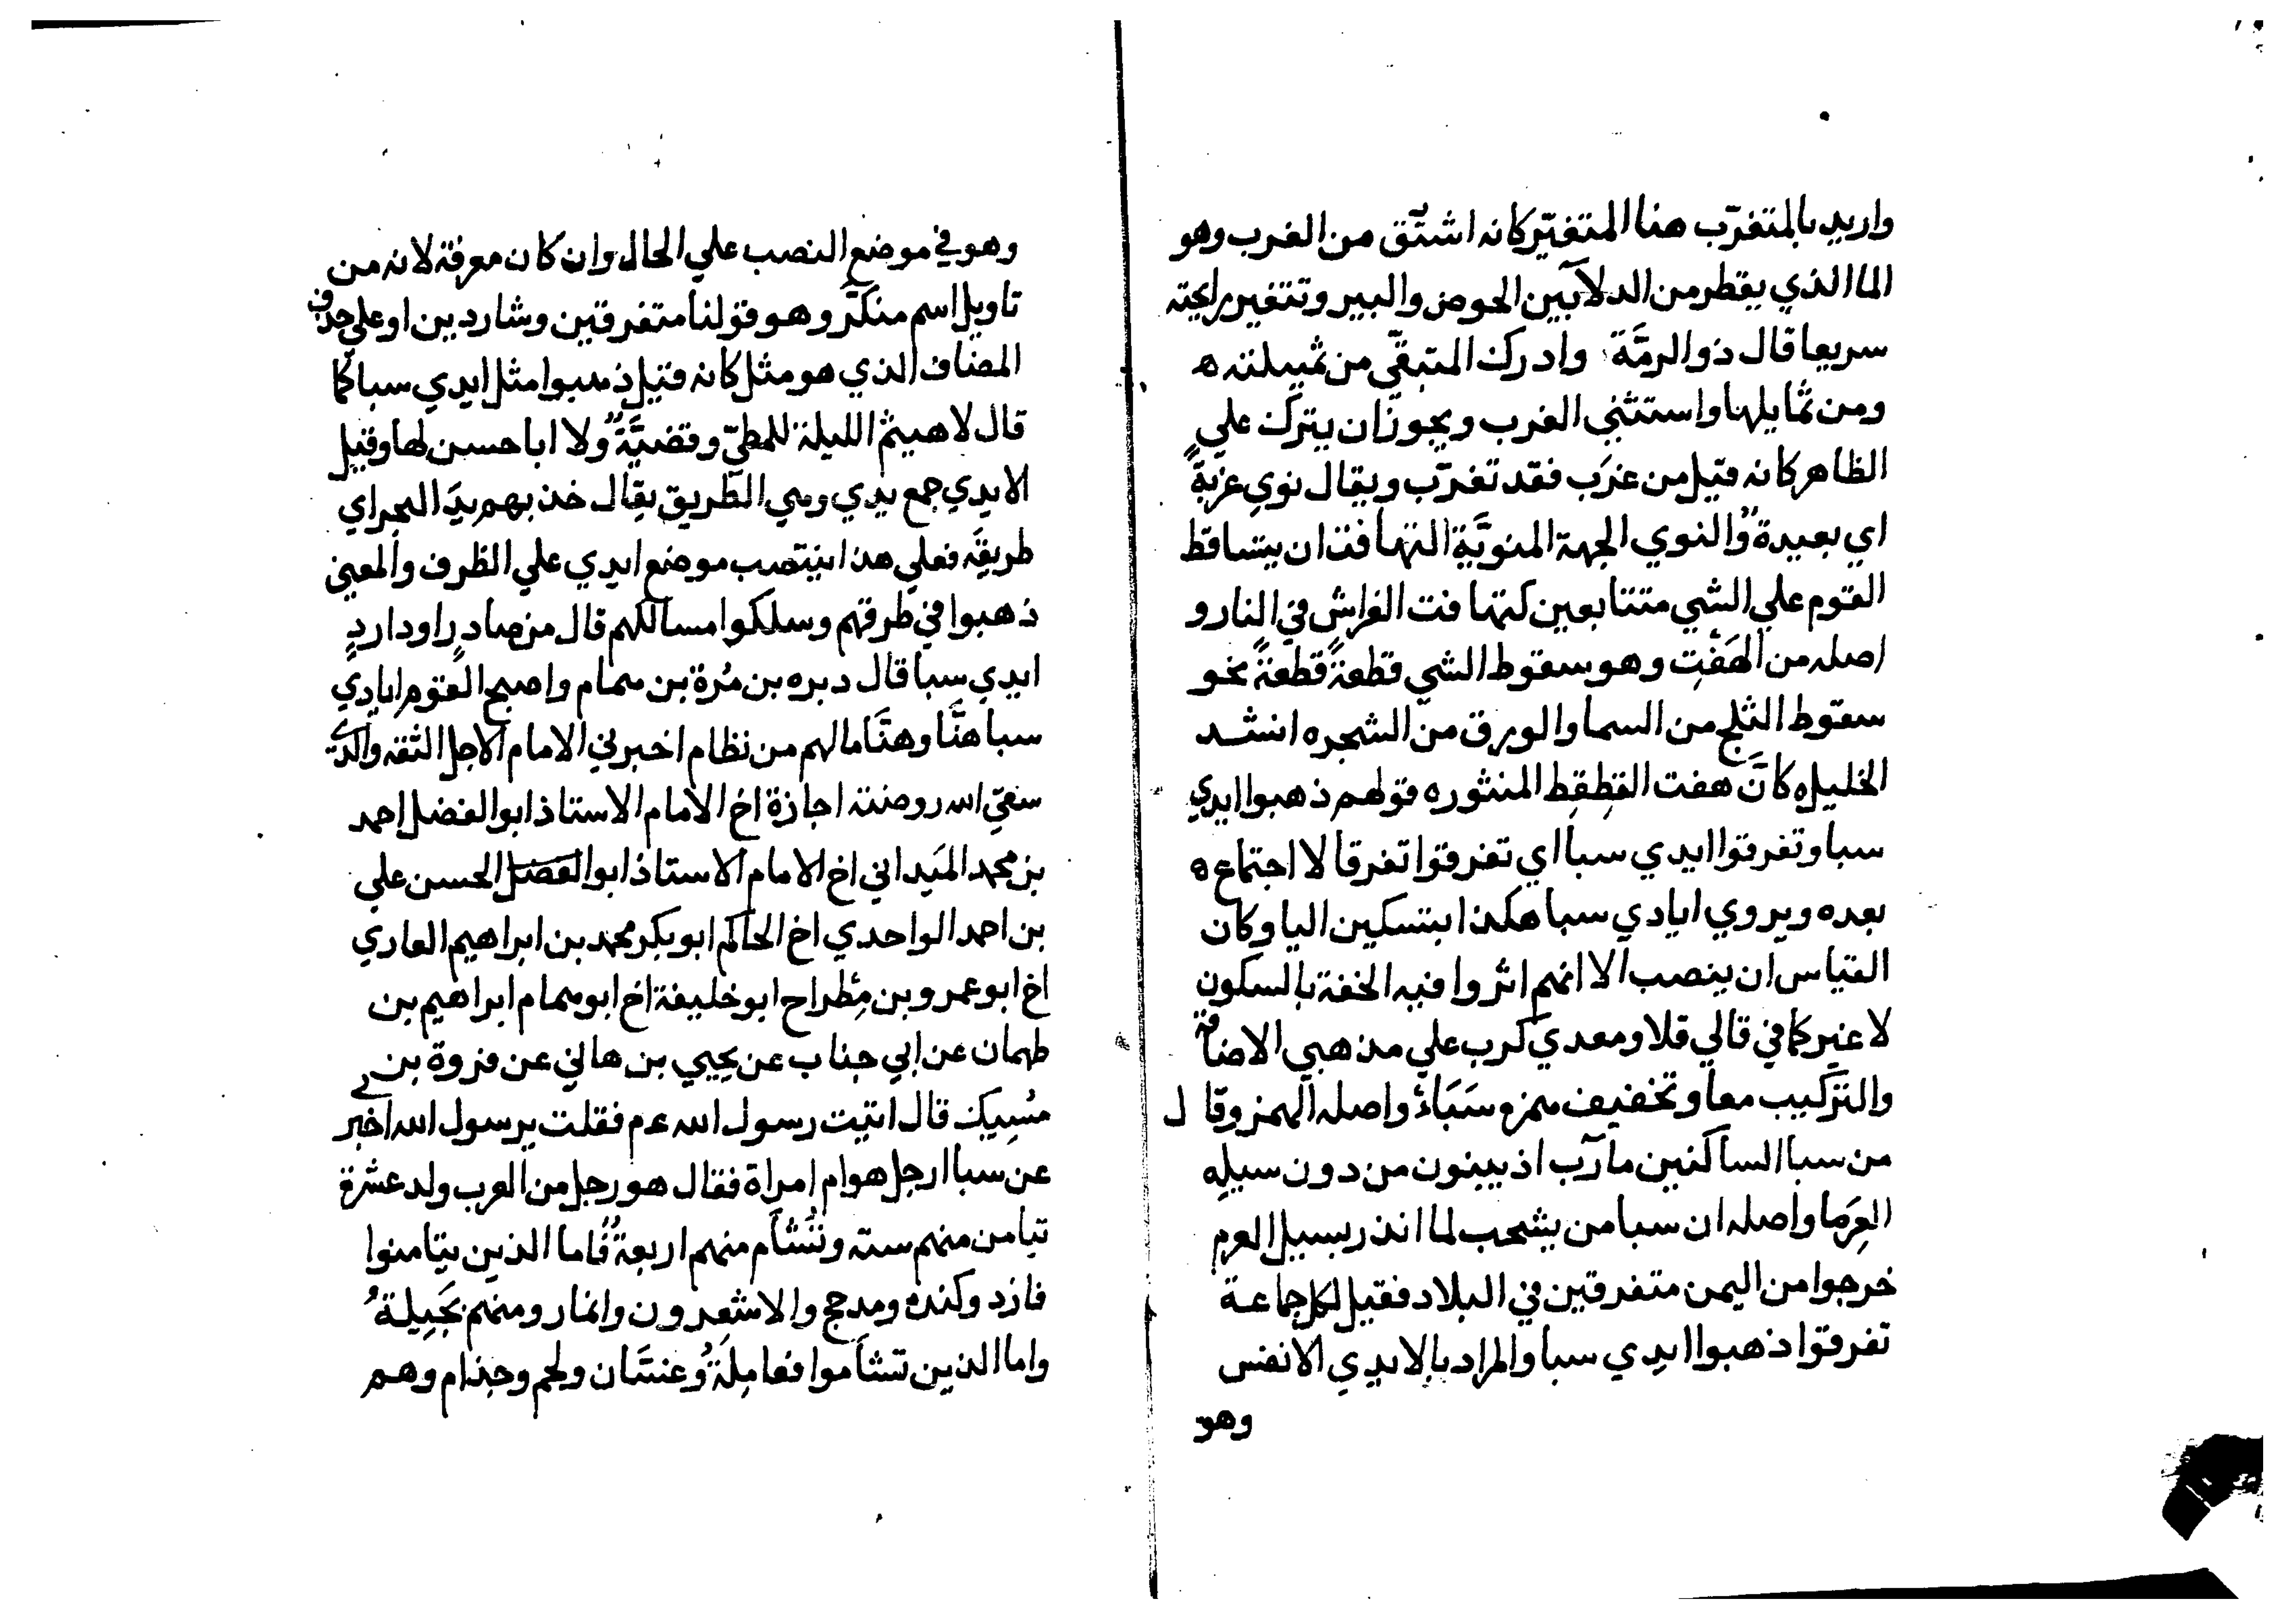 واريد بالمتغرّب هنا المتغيّر كانه اشتّق من الغرب وهو
الما الذي يقطر من الدلآ بين الحوض والبير وتتغير رايحته
سريعا قال ذو الرمّة وادرك المتبقّي من ثميلته ه
ومن ثمايلها واستنثي الغرب ويجوز ان يترك علي
الظاهر كانه قيل من غرَب فقد تغرّب ويقال نوي غربةً
اي بعيدة والنوي الجهة المنويّة التهافت ان يتساقط
القوم علي الشي متتابعين كتهافت الفراش في النار و
اصله من الهَفْتِ وهو سقوط الشي قطعةً قطعةً نحو
سقوط الثلج من السما والورق من الشجره انشد
الخليل ه كانّ هفت القِطقِط المنثوره قولهم ذهبوا ايدي
سبا وتفرقوا ايدي سبا اي تفرقوا تفرقا لا اجتماع ه
بعده ويروي ايادي سبا هكذا بتسكين اليا وكان
القياس ان ينصب الا انهم اثروا فيه الخفة بالسكون
لا غير كما في قالي قلا ومعدي كرب علي مذهبي الاضافة
والتركيب معا وتخفيف همزه سَبَاءُ واصله الهمز وقال
من سبا الساكنين مآرب اذ يبنون من دون سيله
العَرِما واصله ان سبا من يشجب لما انذر بسيل العرم
خرجوا من اليمن متفرقين في البلاد فقيل لكل جماعة
تفرقوا ذهبوا ايدي سبا والمراد بالايدي الانفس
وهو
وهو في موضع النصب علي الحال وان كان معرفة لانه من
تاويل اسم منكّر وهو قولنا متفرقين وشاردين او علي حذف
المضاف الذي هو مثل كانه قيل ذهبوا مثل ايدي سبا كما
قال لا هيثم الليلة للمطيّ وقضيّةٌ ولا ابا حسن لها وقيل
الايدي جمع يدي وهي الطريق يقال خذ بهم يدَ البحر اي
طريقَه فعلي هذا ينتصب موضع ايدي علي الظرف والمعني
ذهبوا في طرقهم وسلكوا مسالكهم قال من صادرٍ او داردٍ
ايدي سبا قال دبره بن مُرة بن همام واصبح القوم ايادي
سبا هنّا وهنّا ما لهم من نظام اخبرني الامام الاجل الثقه والدي
سقي الله روضته اجازة اخ الامام الاستاذ ابو الفضل احمد
بن محمد الميَداني اخ الامام الاستاذ ابو الفضل الحسن علي
بن احمد الواحدي اخ الحاكم ابو بكر محمد بن ابراهيم العاري
اخ ابو عمرو بن مِطراح ابو خليفة اخ ابو همام ابراهيم بن
طهمان عن ابي جناب عن يحيي بن هاني عن فروة بن
مُسيك قال اتيت رسول الله عم فقلت يرسول الله اخبرني
عن سبا ارجل هو ام امراة فقال هو رجل من العرب ولد عشرة
تيامن منهم سته وتشأم منهم اربعةٌ فاما الذين يتامنوا
فازد وكنده ومدحج والاشعرون وانمار ومنهم بَجيلةُ
واما الذين تشأموا فعامِلَةُ وغسّان ولخم وجذام وهم